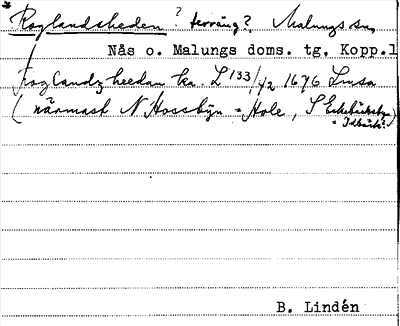 * Roglandsheden? terräng?, Malungs sn,
Nås o. Malungs doms. tg, Kopp.l
Roglandz heedan kr. L 133/42 1676 Lmsa
(närmast N Hossbyn = Hole, S
B. Lindén